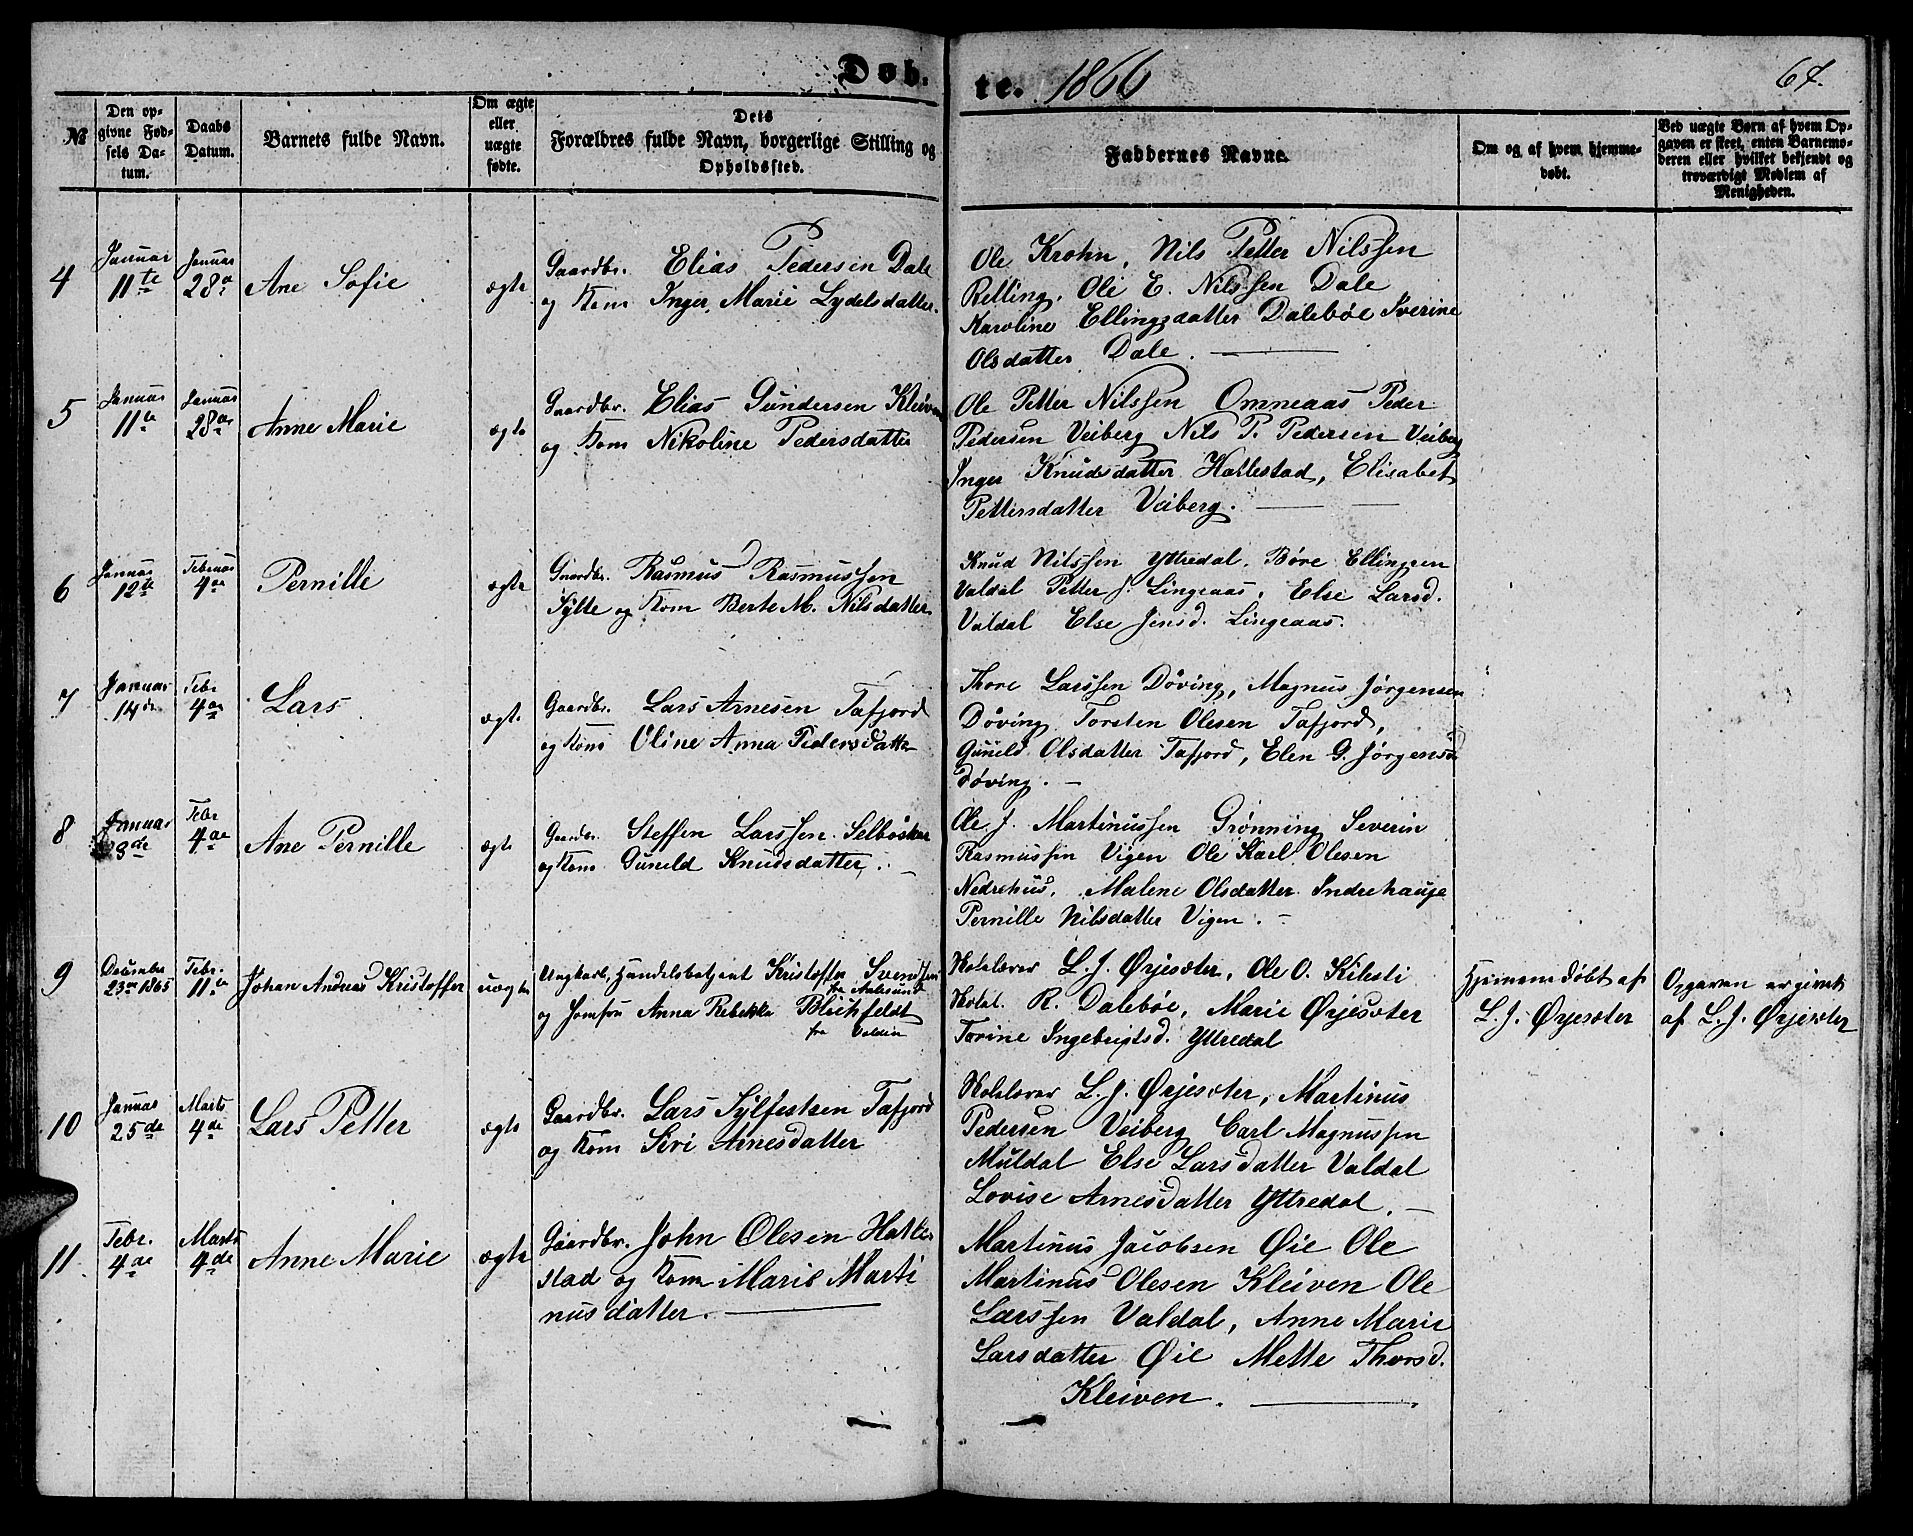 Døb-
te. 1866
67.
№
Den op-
givne Fød-
sels Da-
tum.
Daabs
Datum.
Barnets fulde Navn.
Om ægte
eller
uægte
fødte.
Dets
Forældres fulde Navn, borgerlige Stilling og
Opholdssted.
Faddernes Navne.
Om og af hvem hjemme-
døbt.
Ved uægte Børn af hvem Op-
gaven er skeet, enten Barnemo-
deren eller hvilket bekjendt og
troværdigt Medlem af
Menigheden.
4
Januar
11te
Januar
28de
Ane Sofie
ægte
Gaardbr. Elias Pedersen Dale
og Kone Inger Marie Lydelsdatter.
Ole Krohn, Nils Petter Nilssen
Relling, Ole E. Nilssen Dale
Karoline Ellingsdatter Dalebøe Sverine
Olsdatter Dale.
5
Januar
11te
Januar
28de
Anne Marie
ægte
Gaardbr. Elias Gundersen Kleiven
og Kone Nikoline Pedersdatter
Ole Petter Nilssen Omneaas Peder
Pedersen Veiberg Nils P. Pedersen Veiberg
Inger Knudsdatter Hatlestad, Elisabet
Pettersdatter Veiberg.
6
Januar
12te
Februar
4de
Pernille
ægte
Gaardbr. Rasmus Rasmussen
Sylte og Kone Berte M. Nilsdatter
Knud Nilssen Yttredal, Børe Ellingsen
Valdal Petter J. Lingeaas, Else Larsd.
Valdal Else Jensd. Lingeaas.
7
Januar
14de
Febr
4de
Lars
ægte
Gaardbr. Lars Arnesen Tafjord
og Kone Oline Anna Pedersdatter
Thore Larssen Døving, Magnus Jørgensen
Døving Torsten Olesen Tafjord,
Gunild Olsdatter Tafjord, Elen G. Jørgensd
Døving.
8
Januar
23de
Febr
4de
Ane Pernille
ægte
Gaardbr. Steffen Larssen Selboskar
og Kone Gunild Knudsdatter.
Ole J. Martinussen Grønning Severin
Rasmussen Vigen Ole Karl Olesen
Nedrehus, Malene Olsdatter Indrehauge
Pernille Nilsdatter Vigen.
9
December
23de 1865
Febr.
11te
Johan Andreas Kristoffer
uægte
Ungkarl, Handelsbetjent Kristoffer Svendsen
fra Aalesund
og Jomfru Anna Rebekka Blichfeldt
fra Volden
Skolelærer L. J. Ørjesæter, Ole O. Kilsti
Skol. R. Dalebøe, Marie Ørjesæter
Torine Ingebrigtsd. Yttredal
Hjemmedøbt af
L. J. Ørjesæter
Opgaven er givet
af L. J. Ørjesæter
10
Januar
25de
Marts
4de
Lars Petter
ægte
Gaardbr. Lars Sylfestsen Tafjord
og Kone Siri Arnesdatter
Skolelærer L. J. Ørjesæter, Martinus
Pedersen Veiberg Carl Magnussen
Muldal Else Larsdatter Valdal
Lovise Arnesdatter Yttredal.
11.
Febr.
4de
Marts
4de
Anne Marie
ægte
Gaardbr. John Olesen Hatle-
stad og Kone Marie Marti
nusdatter.
Martinus Jacobsen Øie Ole
Martinus Olesen Kleiven Ole
Larssen Valdal, Anne Marie
Larsdatter Øie Mette Thorsd.
Kleiven.